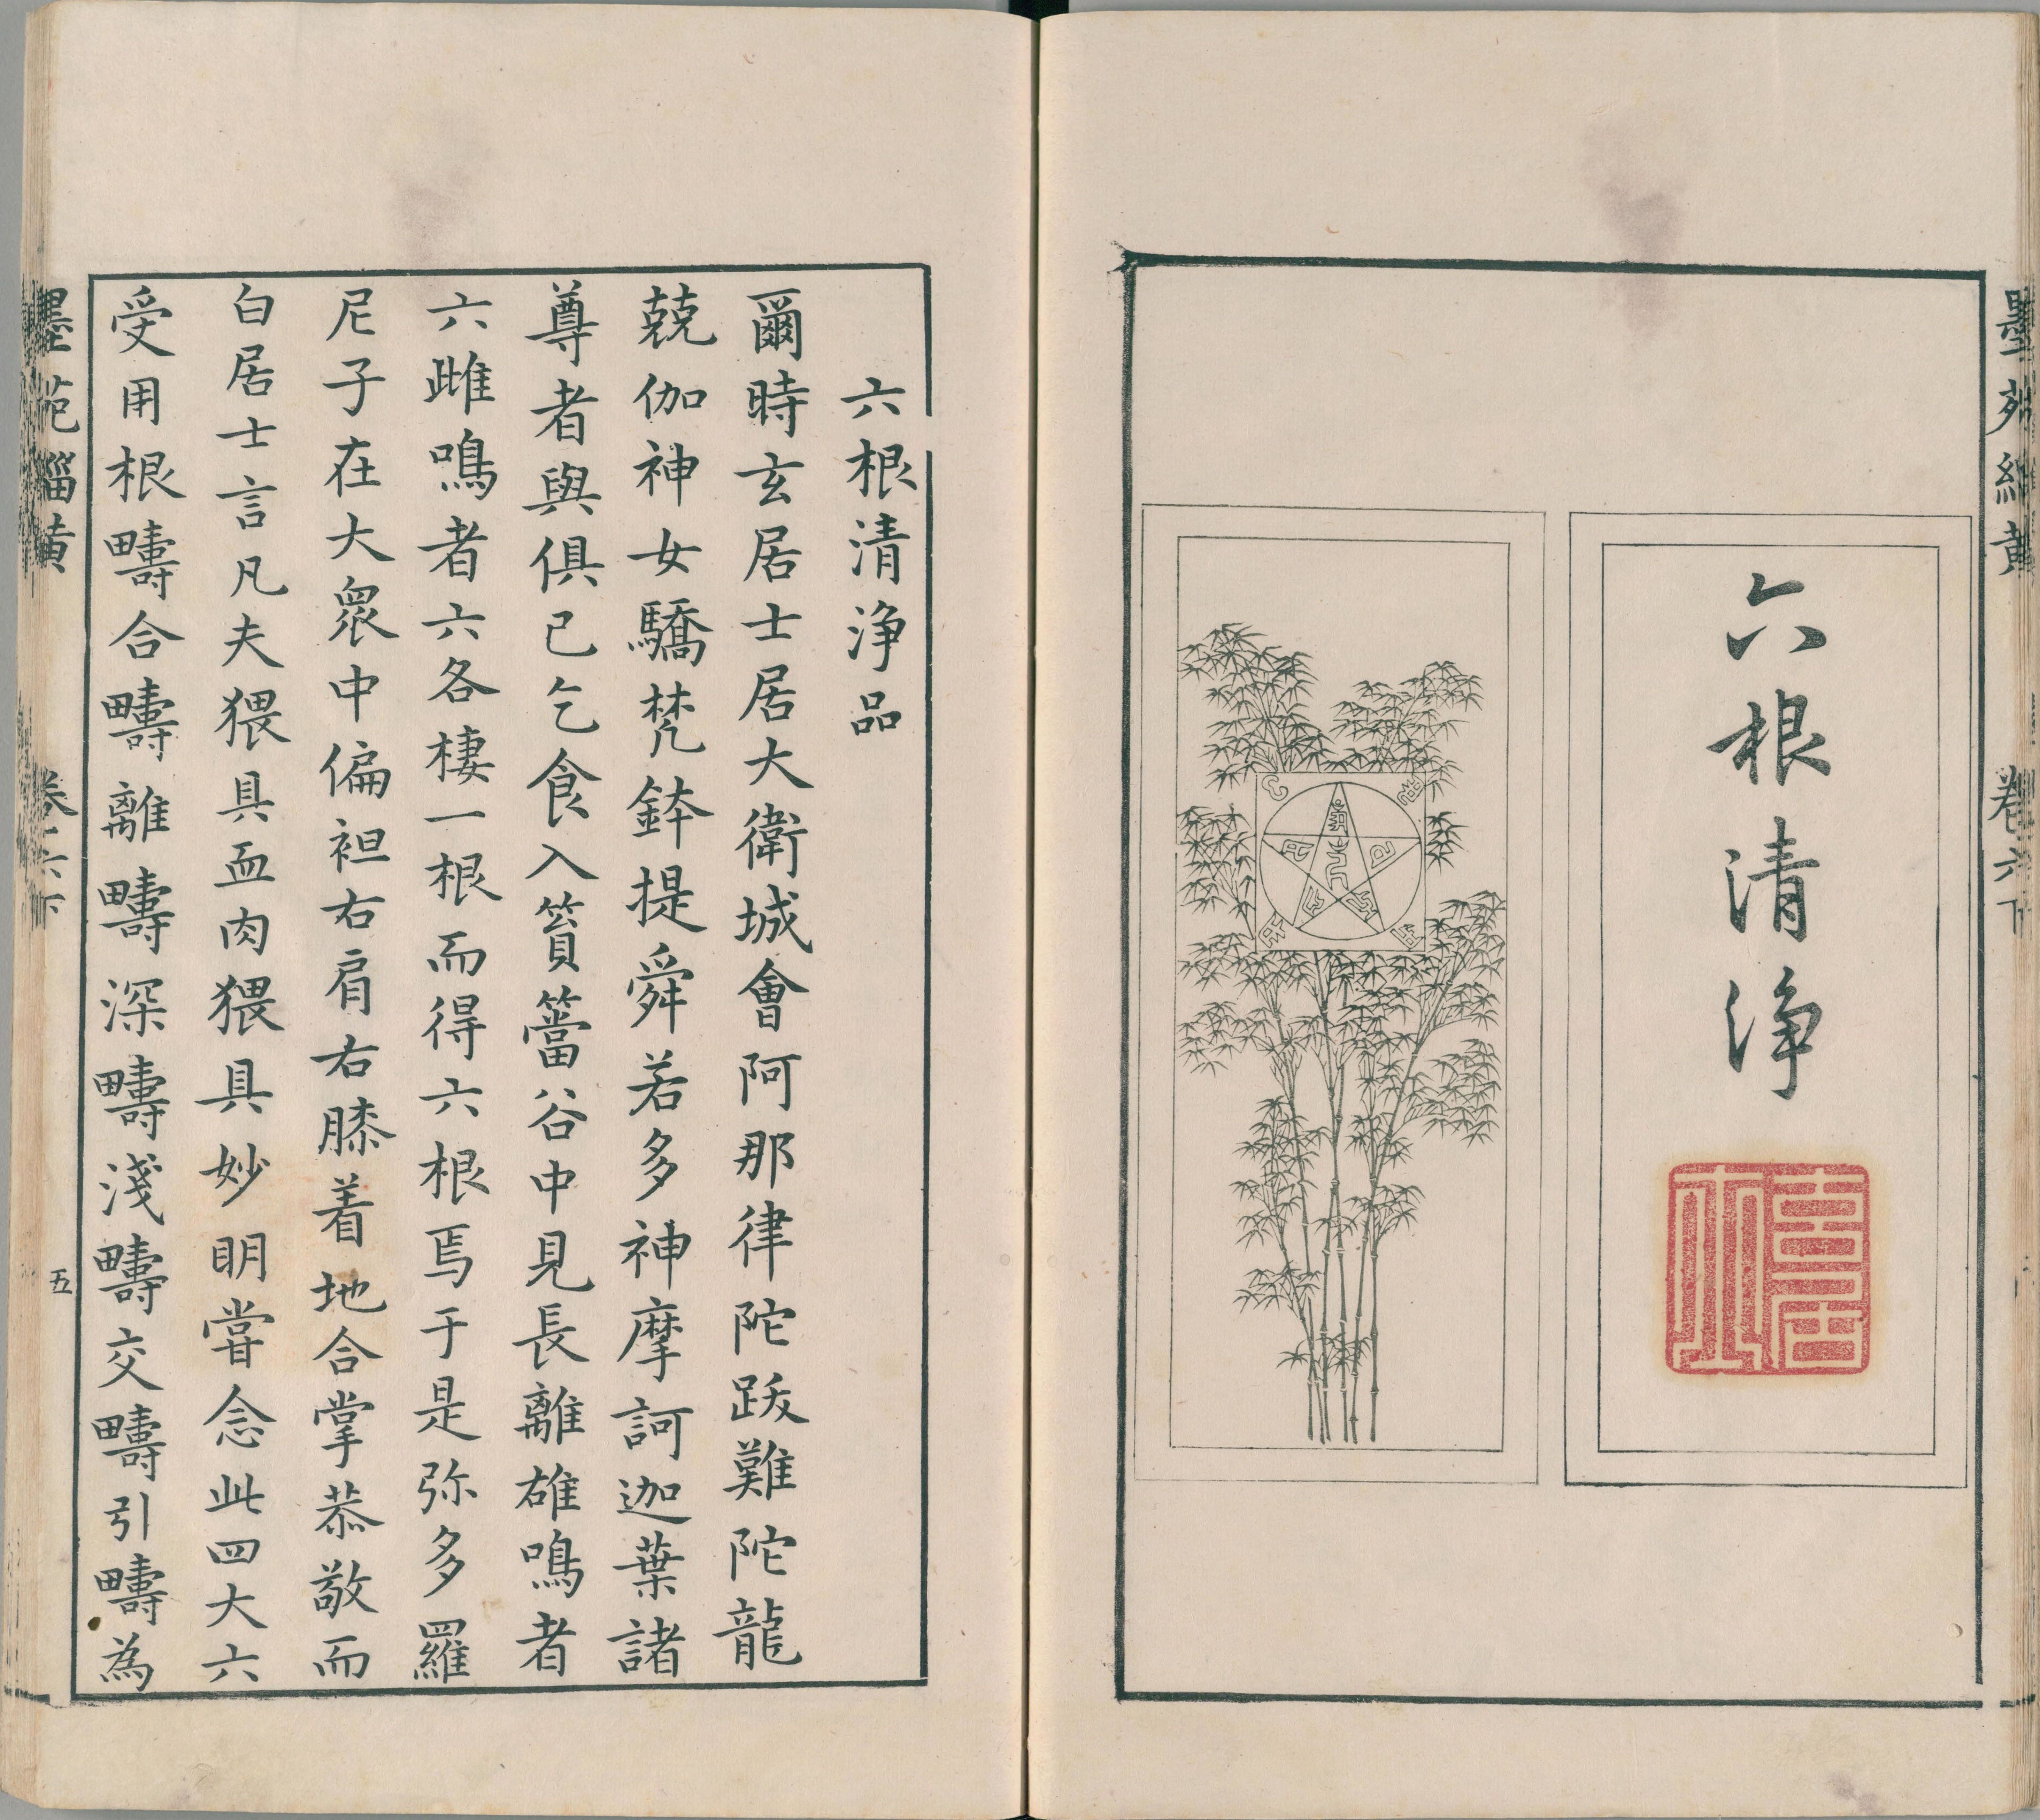 墨苑緇黄
卷六下
六根清浄
六根清浄品
爾時玄居士居大衛城會阿那律陀跋難陀龍
兢伽神女驕梵鉢提舜若多神摩訶迦葉諸
尊者與俱已乞食入篔簹谷中見長離雄鳴者
六雌鳴者六各棲一根而得六根焉于是弥多羅
尼子在大衆中偏袒右肩右膝着地合掌恭敬而
白居士言凡夫猥具血肉猥具妙明甞念此四大六
受用根疇合疇離疇深疇淺疇交疇引疇為
墨苑緇黄
卷六下
五